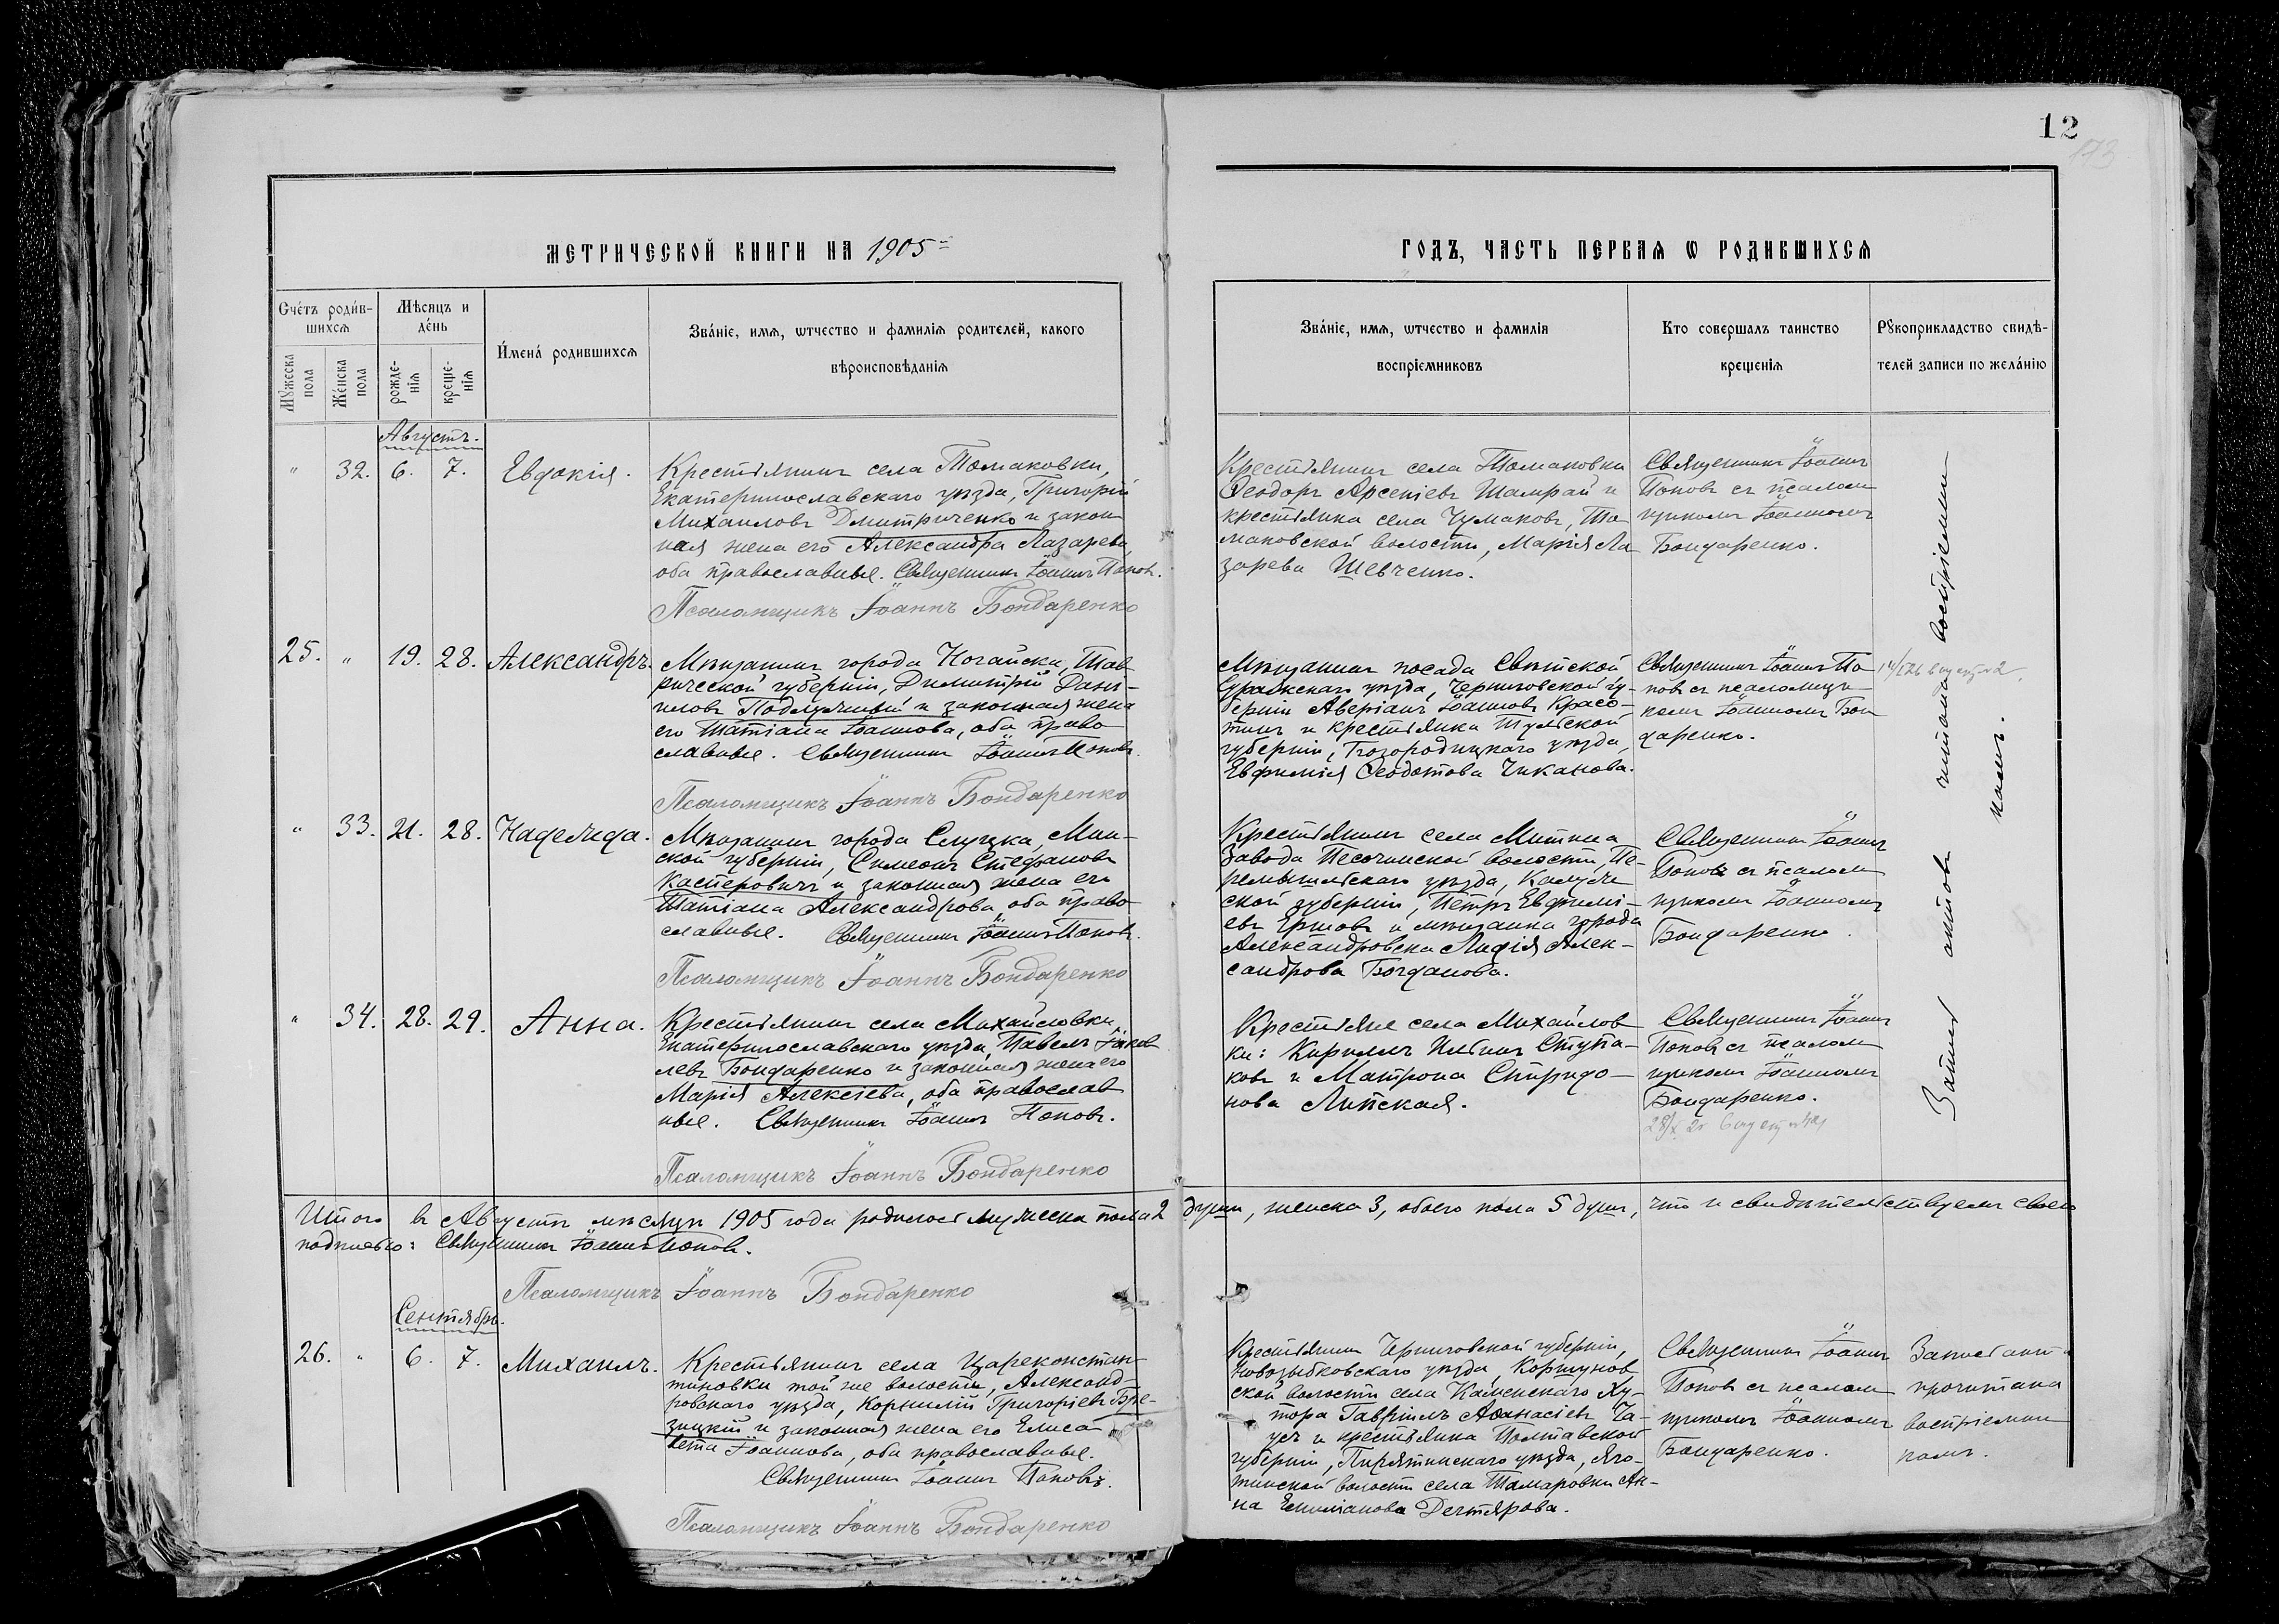 12
173
МЕТРИЧЕСКОЙ КНИГИ НА 1905
ГОДЪ, ЧАСТЬ ПЕРВАЯ Ѡ РОДИВШИХСЯ
Счетъ родив-
шихся
Мѹжеска
пола
Женска
пола
Мѣсяцъ и
день
рожде-
нія
креще-
нія
Имена родившихся
Званіе, имя, ѿчество и фамилія родителей, какого
вѣроисповѣданія
Званіе, имя, ѿчество и фамилія
воспріемниковъ
Кто совершалъ таинство
крещенія
Рѹкоприкладство свидѣ-
телей записи по желанію
Августъ.
" 32. 6. 7. Евдокія.
Крестьянинъ села Томаковки,
Екатеринославскаго уѣзда, Григорій
Михаиловъ Дмитриченко и закон
ная жена его Александра Лазарева,
оба православные. Священникъ Іоаннъ Поповъ.
Псаломщикъ Іоаннъ Бондаренко
Крестьянинъ села Томаковки
Ѳеодоръ Арсеніевъ Шамрай и
крестьянка села Чумаковъ, То
маковской волости, Марія Ла
зарева Шевченко.
Священникъ Іоаннъ
Поповъ съ псалом
щикомъ Іоанномъ
Бондаренко.
25. " 19. 28. Александръ.
Мѣщанинъ города Ногайска, Тав
рической губерніи, Димитрій Дани-
иловъ и законная жена
его Татіана Іоаннова, оба право
славные. Священникъ Іоаннъ Поповъ.
Псаломщикъ Іоаннъ Бондаренко
Мѣщанинъ посада Свѣтской
Суражскаго уѣзда, Черниговской гу-
берніи Аверіанъ Іоанновъ Красо-
тинъ и крестьянка Тульской
губерніи, Богородицкаго уѣзда,
Евфимія Ѳеодотова Чиканова.
Священникъ Іоаннъ По
повъ съ псаломщи
комъ Іоанномъ Бон
даренко.
" 33. 21. 28. Надежда.
Мѣщанинъ города Слуцка, Мин-
ской губерніи, Симеонъ Стефановъ
Касперовичъ и законная жена его
Татіана Александрова, оба право
славные. Священникъ Іоаннъ Поповъ.
Псаломщикъ Іоаннъ Бондаренко
Крестьянинъ села Митина
Завода Песочинской волости, Пе-
ремышльскаго уѣзда, Калуж
ской губерніи, Петръ Евфимі-
евъ Ершовъ и мѣщанка города
Александровска Лидія Алек-
сандрова Богданова.
Священникъ Іоаннъ
Поповъ съ псалом
щикомъ Іоанномъ
Бондаренко.
" 34. 28. 29. Анна.
Крестьянинъ села Михайловки
Екатеринославскаго уѣзда, Павелъ Іаков
левъ Бондаренко и законная жена его
Марія Алексіева, оба православ
ные. Священникъ Іоаннъ Поповъ.
Псаломщикъ Іоаннъ Бондаренко
Крестьяне села Михайлов
ки: Кириллъ Ильинъ Ступа-
ковъ и Матрона Спиридо-
нова Липская.
Священникъ Іоаннъ
Поповъ съ псалом
щикомъ Іоанномъ
Бондаренко.
Запись актовъ читана воспріемни
камъ.
Итого въ Августѣ мѣсяцѣ 1905 года родилось мужеска пола 2 души, женска 3, обоего пола 5 душъ, что и свидѣтельствуемъ своею
подписью: Священникъ Іоаннъ Поповъ.
Псаломщикъ Іоаннъ Бондаренко
Сентябрь.
26. " 6. 7. Михаилъ.
Крестьянинъ села Цареконстан
тиновки той же волости, Александ-
ровскаго уѣзда, Корнилій Григоріевъ Бре-
зицкій и законная жена его Елиса
вета Іоаннова, оба православные.
Священникъ Іоаннъ Поповъ.
Псаломщикъ Іоаннъ Бондаренко
Крестьянинъ Черниговской губерніи,
Новозыбковскаго уѣзда, Коржунов
ской волости села Каменскаго Ху-
тора Гавріилъ Аѳанасіевъ Ча-
усъ и крестьянка Полтавской
губерніи, Пирятинскаго уѣзда, Яго-
тинской волости села Ташаровки Ан-
на Дегтярова.
Священникъ Іоаннъ
Поповъ съ псалом
щикомъ Іоанномъ
Бондаренко.
Запись акт
прочитана
воспріемни
камъ.